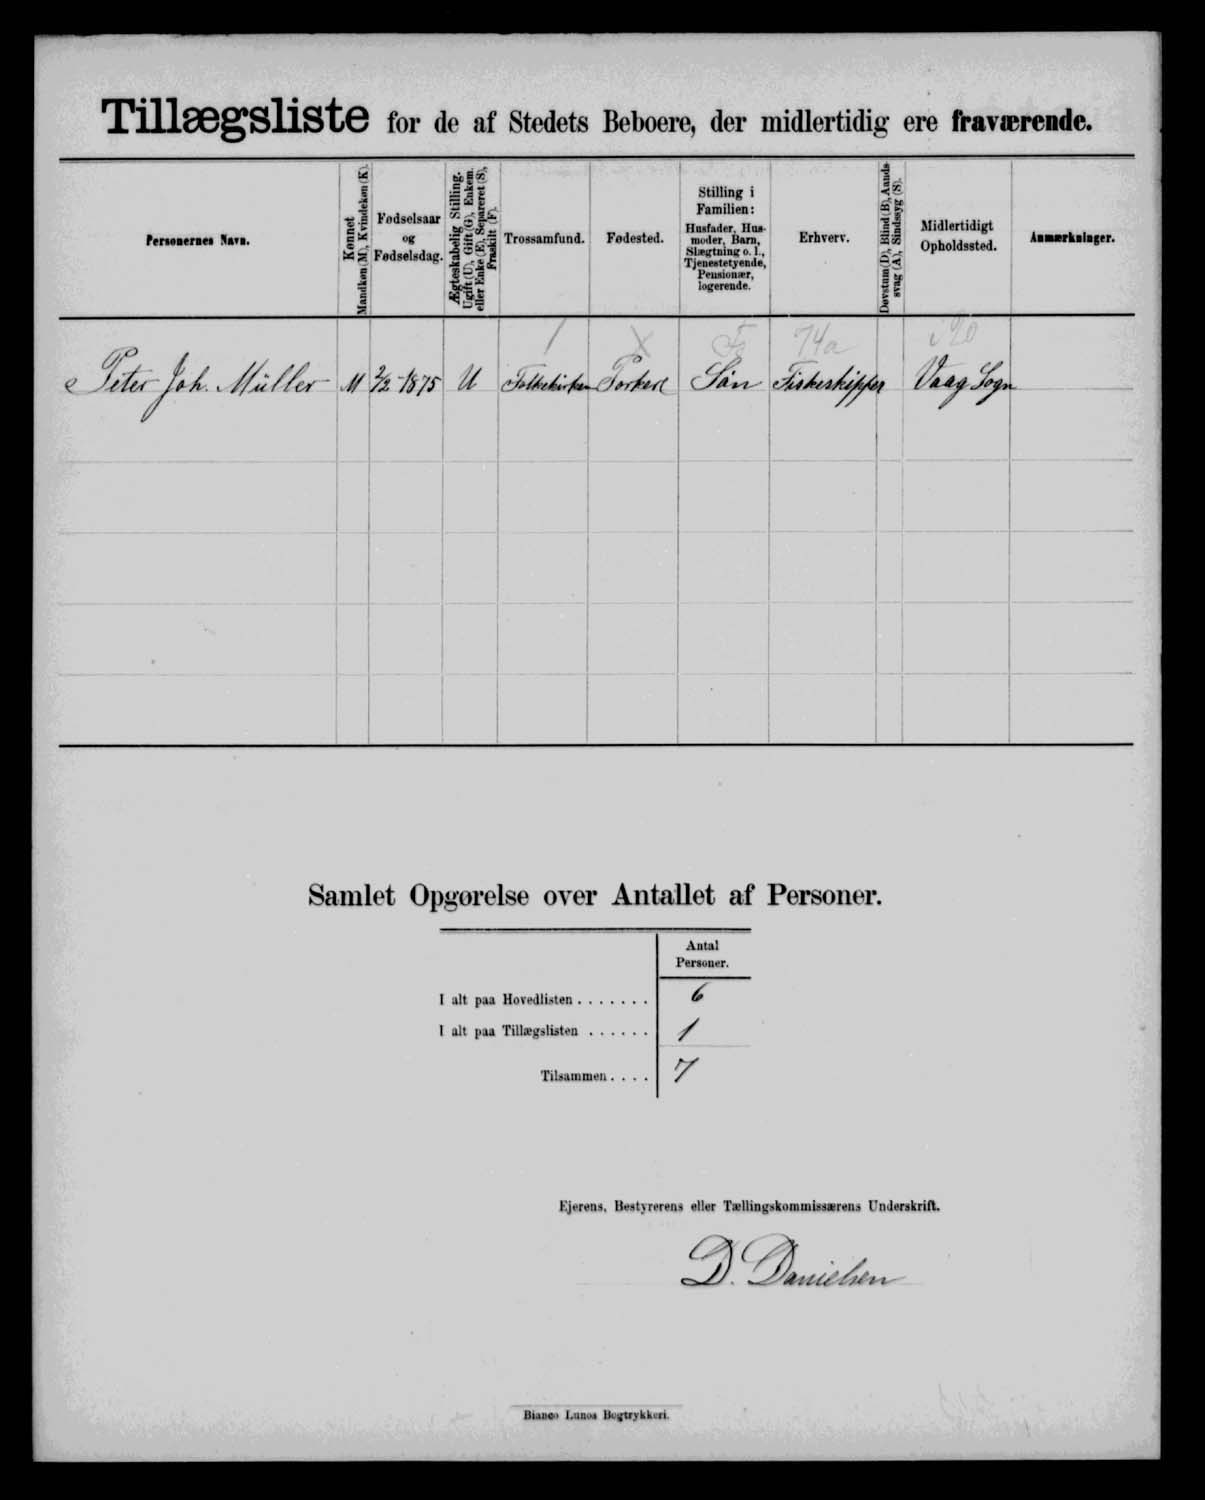 Tillægsliste for de af Stedets Beboere, der midlertidig ere fraværende.
Personernes Navn.
Kønnet
Mandkøn (M), Kvindekøn (K).
Fødselsaar
og
Fødselsdag.
Ægteskabelig Stilling.
Ugift (U), Gift (G), Enkem.
eller Enke (E), Separeret (S),
Fraskilt (F).
Trossamfund.
Fødested.
Stilling i
Familien:
Husfader, Hus-
moder, Barn,
Slægtning o. l.,
Tjenestetyende,
Pensionær,
logerende.
Erhverv.
Døvstum (D), Blind (B), Aands-
svag (A), Sindssyg (S).
Midlertidigt
Opholdssted.
Anmærkninger.
74a
Peter Joh. Müller M 2/2-1875 U Folkekirken Porkeri Sön Fiskeskipper Vaag Sogn
Samlet Opgørelse over Antallet af Personer.
Antal
Personer.
I alt paa Hovedlisten . . . . . . . 6
I alt paa Tillægslisten . . . . . . 1
Tilsammen . . . . 7
Ejerens, Bestyrerens eller Tællingskommissærens Underskrift.
D. Danielsen
Bianco Lunos Bogtrykkeri.